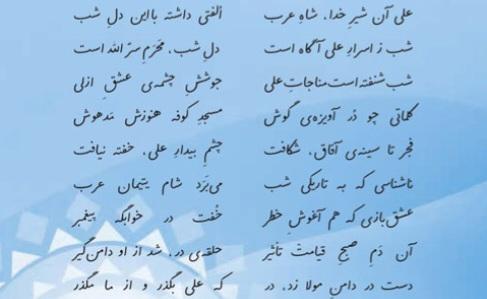 علی آن شیرِ خدا، شاهِ عرب اُلفتی داشته بااین دلِ شب
شب ز اسرارِ علی آگاه است دلِ شب، مَحرَمِ سرّ الله است
شب شنفته است مناجاتِ علی جوششِ چشمه‌ی عشقِ ازلی
کلماتی چو دُر آویزه‌ی گوش مسجدِ کوفه هنوزش مَدهوش
فجر تا سینه‌ی آفاق، شکافت چشمِ بیدارِ علی، خفته نیافت
ناشناسی که به تاریکیِ شب می‌بَرَد شامِ یتیمانِ عرب
عشق‌بازی که هم آغوشِ خطر خُفت در خوابگهِ پیغمبر
آن دَمِ صبحِ قیامت تأثیر حلقه‌ی در، شد از او دامن‌گیر
دست در دامنِ مولا زد، در که علی بگذر و از ما مگذر